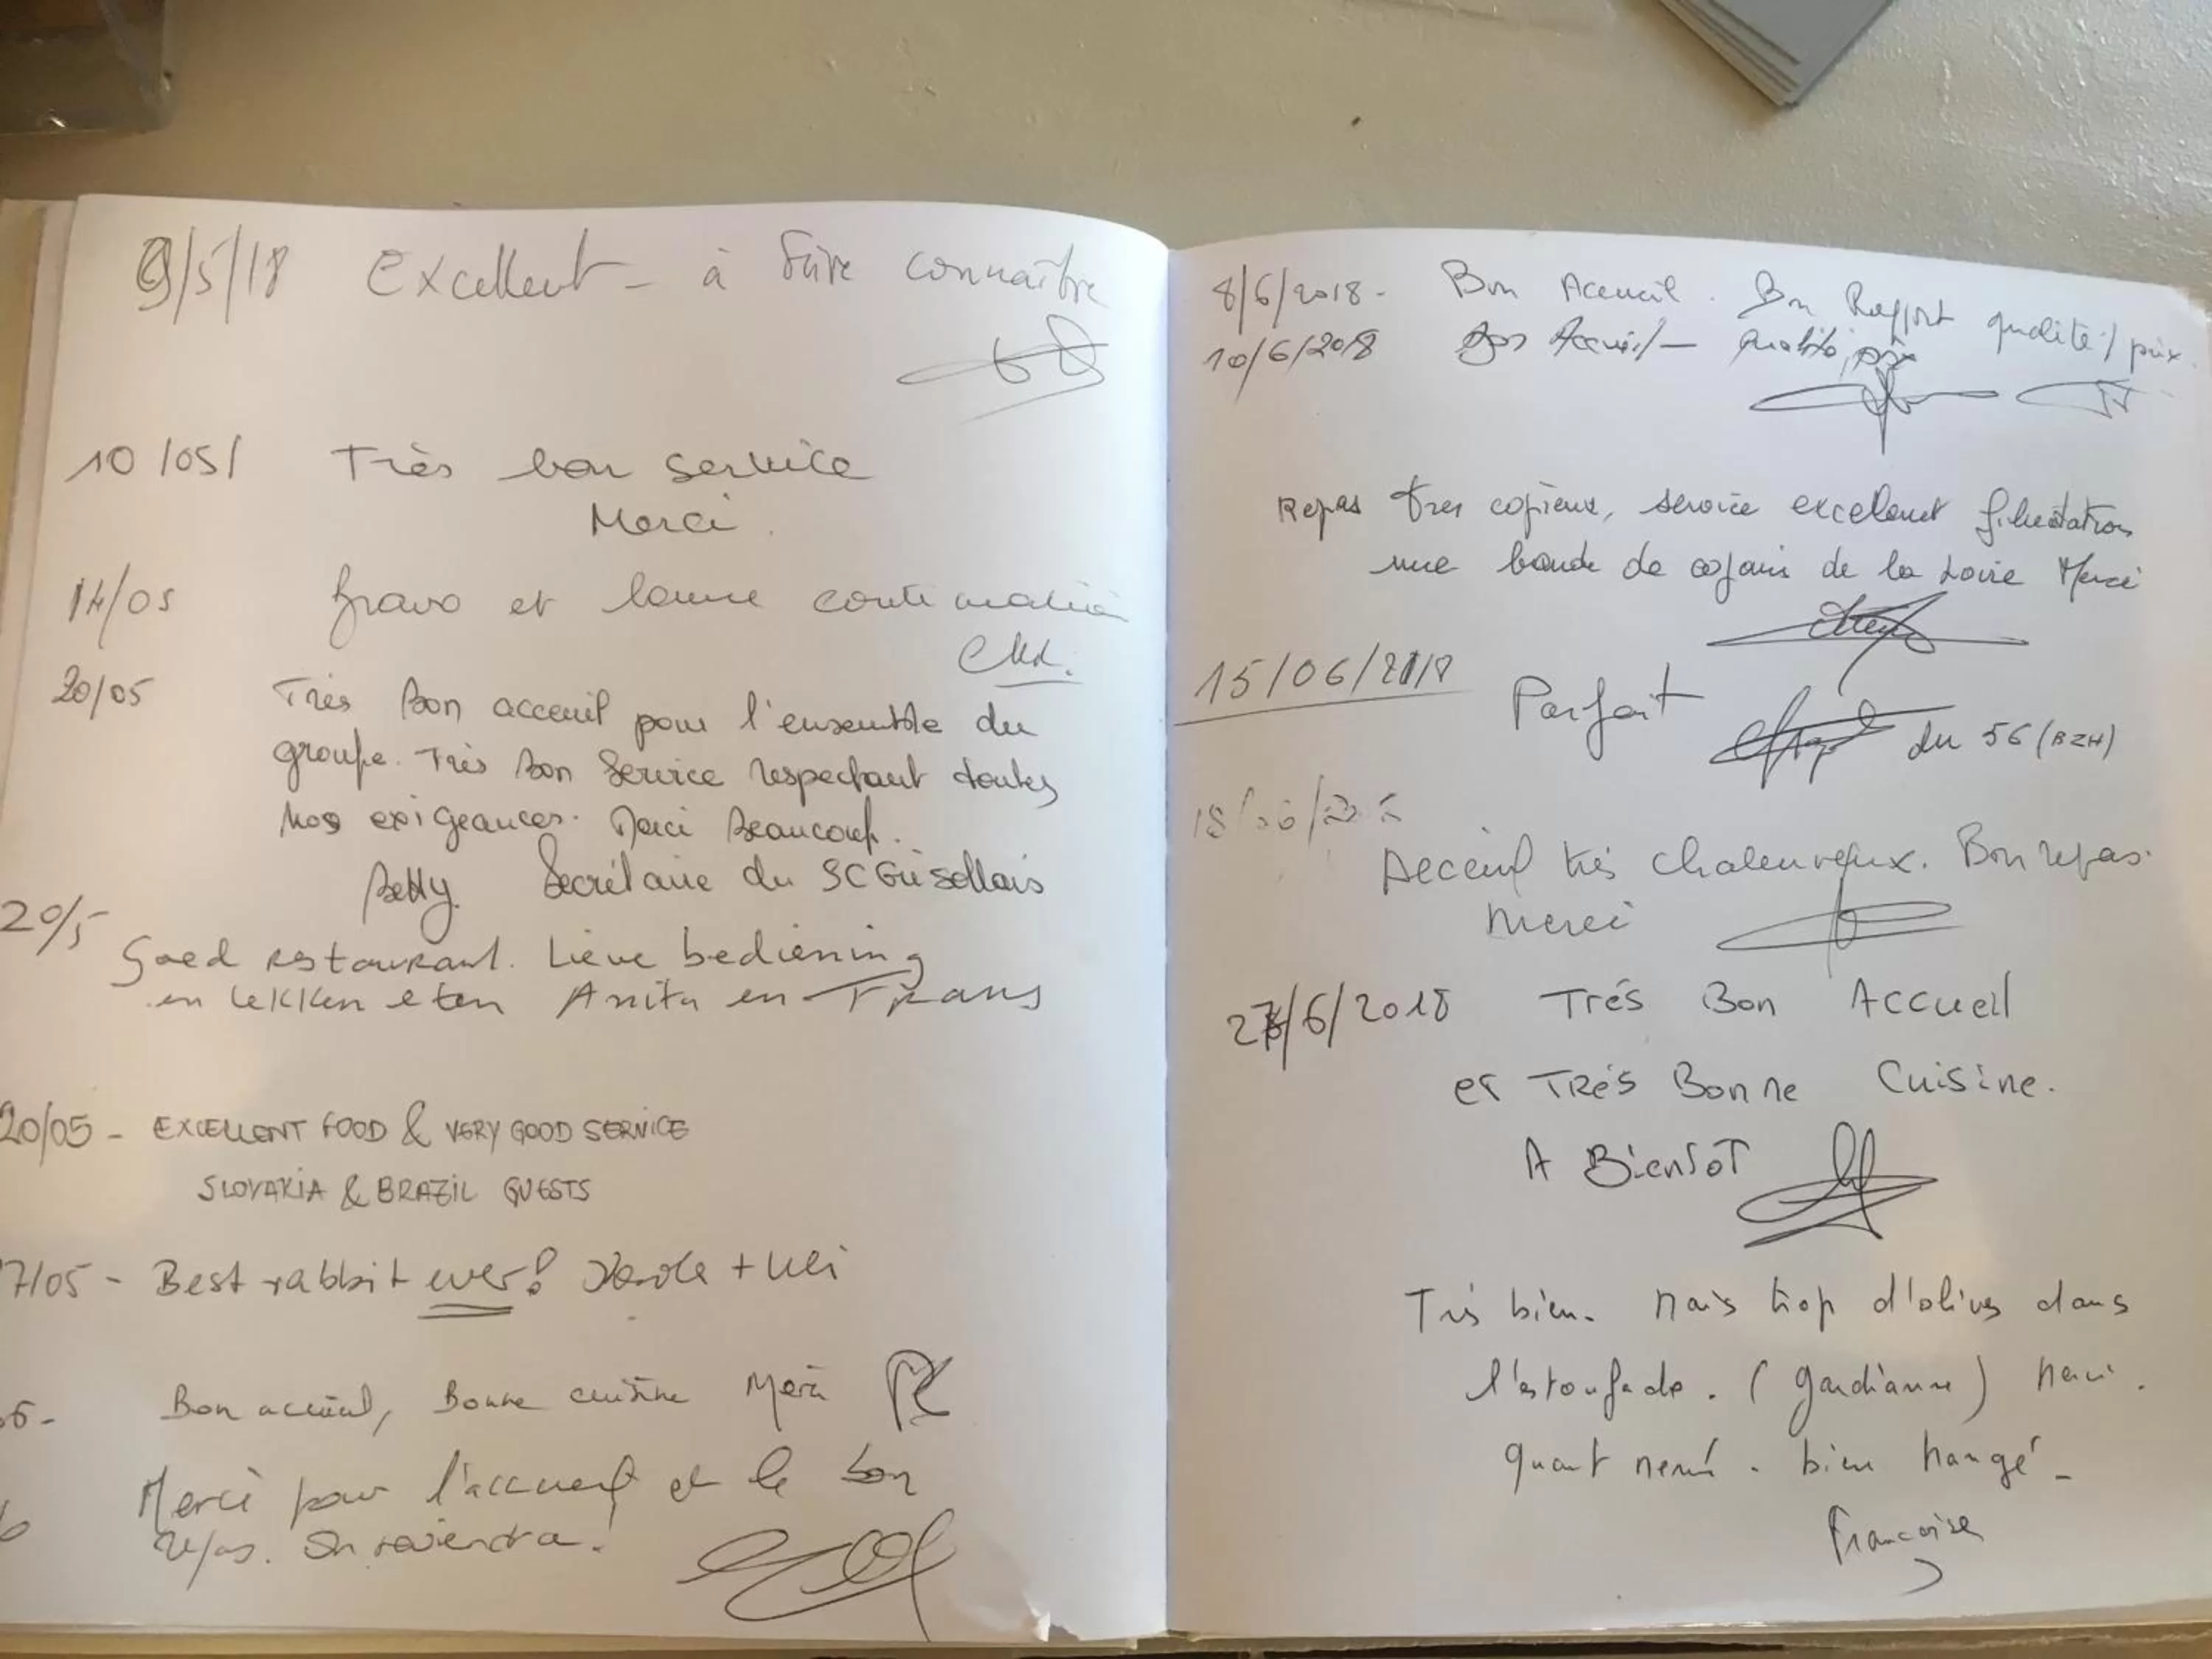 9/5/18 Excellent - à faire connaître
10/05/ Très bon service
Merci.
14/05 Bravo et bonne continuation
20/05 Très Bon acceuil pour l'ensemble du
groupe. Très Bon Service respectant toutes
nos exigeances. Merci Beaucoup.
Betty. Secrétaire du SC
20/5
Goed restaurant. Lieve bediening
en lekken eten Anita en Frans
20/05 - EXCELLENT FOOD & VERY GOOD SERVICE
SLOVAKIA & BRAZIL GUESTS
7/05 - Best rabbit ever! + Uli
6- Bon accueil, Bonne cuisine Merci
Merci pour l'accueil et le bon
6 repas. On reviendra!
8/6/2018 - Bon Acceuil. Bon Rapport qualité/prix
10/6/2018 Bon Accueil - Qualité, prix
Repas tres copieux, service excelent
une bande de copains de la Loire Merci
15/06/2018 Parfait
du 56 (BZH)
18/06/
Acceuil très chaleureux. Bon repas.
Merci
27/6/2018 Trés Bon Accueil
et Trés Bonne Cuisine.
A Bientot
Très bien. Mais trop d'olives dans
l'estoufade. (gardianne) Merci.
quant même. bien mangé -
Françoise